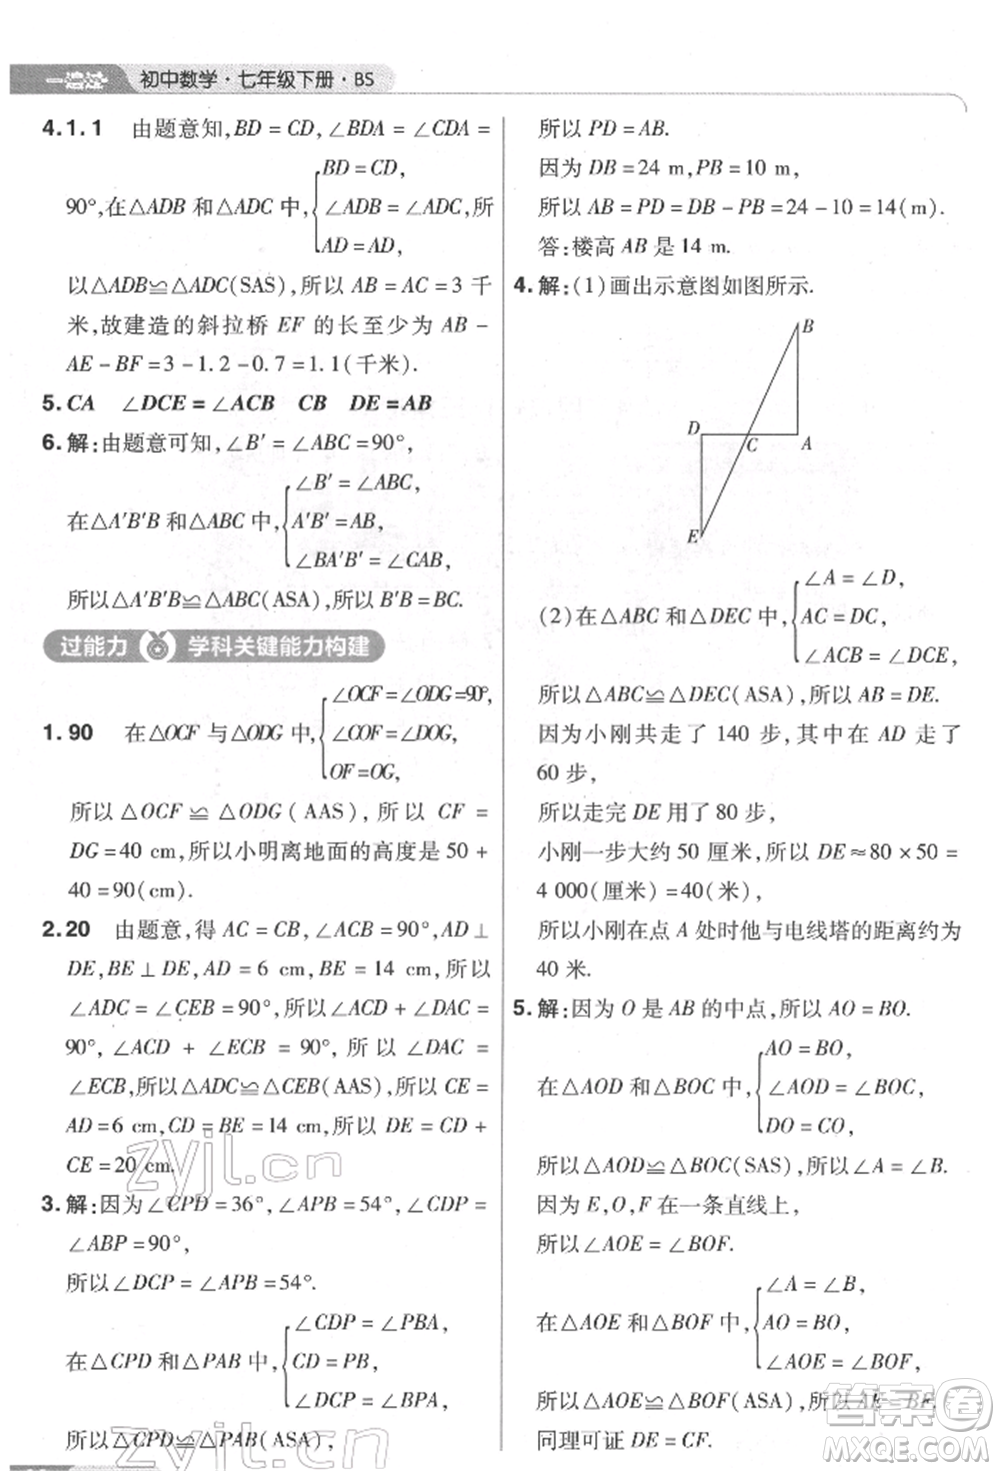 一遍过 初中数学·七年级下册·BS
4.1.1 由题意知,BD=CD,∠BDA=∠CDA=
BD=CD,
90°,在△ADB 和△ADC 中,∠ADB=∠ADC,所
AD=AD,
以△ADB≌△ADC(SAS),所以 AB=AC=3 千
米,故建造的斜拉桥 EF 的长至少为 AB-
AE-BF=3-1.2-0.7=1.1(千米).
5.CA ∠DCE=∠ACB CB DE=AB
6.解:由题意可知,∠B′=∠ABC=90°,
∠B′=∠ABC,
在△A′B′B 和△ABC 中,A′B′=AB,
∠BA′B′=∠CAB,
所以△A′B′B≌△ABC(ASA),所以 B′B=BC.
过能力 学科关键能力构建
∠OCF=∠ODG=90°,
1.90 在△OCF 与△ODG 中,∠COF=∠DOG,
OF=OG,
所以 △OCF≌△ODG(AAS),所以 CF=
DG=40 cm,所以小明离地面的高度是50+
40=90(cm).
2.20 由题意,得 AC=CB,∠ACB=90°,AD⊥
DE,BE⊥DE,AD=6 cm,BE=14 cm,所以
∠ADC=∠CEB=90°,所以∠ACD+∠DAC=
90°,∠ACD+∠ECB=90°,所以∠DAC=
∠ECB,所以△ADC≌△CEB(AAS),所以 CE=
AD=6 cm,CD=BE=14 cm,所以 DE=CD+
CE=20 cm.
3.解:因为∠CPD=36°,∠APB=54°,∠CDP=
∠ABP=90°,
所以∠DCP=∠APB=54°.
∠CDP=∠PBA,
在△CPD 和△PAB 中,CD=PB,
∠DCP=∠BPA,
所以△CPD≌△PAB(ASA),
所以 PD=AB.
因为 DB=24 m,PB=10 m,
所以 AB=PD=DB-PB=24-10=14(m).
答:楼高 AB 是 14 m.
4.解:(1)画出示意图如图所示.
B
D
C
A
E
∠A=∠D,
(2)在△ABC 和△DEC 中,AC=DC,
∠ACB=∠DCE,
所以△ABC≌△DEC(ASA),所以 AB=DE.
因为小刚共走了 140 步,其中 AD 走了
60 步,
所以走完 DE 用了 80 步,
小刚一步大约 50 厘米,所以 DE≈80×50=
4 000(厘米)=40(米),
所以小刚在点 A 处时他与电线塔的距离约为
40 米.
5.解:因为 O 是 AB 的中点,所以 AO=BO.
AO=BO,
在△AOD 和△BOC 中,∠AOD=∠BOC,
DO=CO,
所以△AOD≌△BOC(SAS),所以∠A=∠B.
因为 E,O,F 在一条直线上,
所以∠AOE=∠BOF.
∠A=∠B,
在△AOE 和△BOF 中,AO=BO,
∠AOE=∠BOF,
所以△AOE≌△BOF(ASA),所以 AE=BF.
同理可证 DE=CF.
zyjl.cn
zyjl.cn
答案卷
MXQE.COM